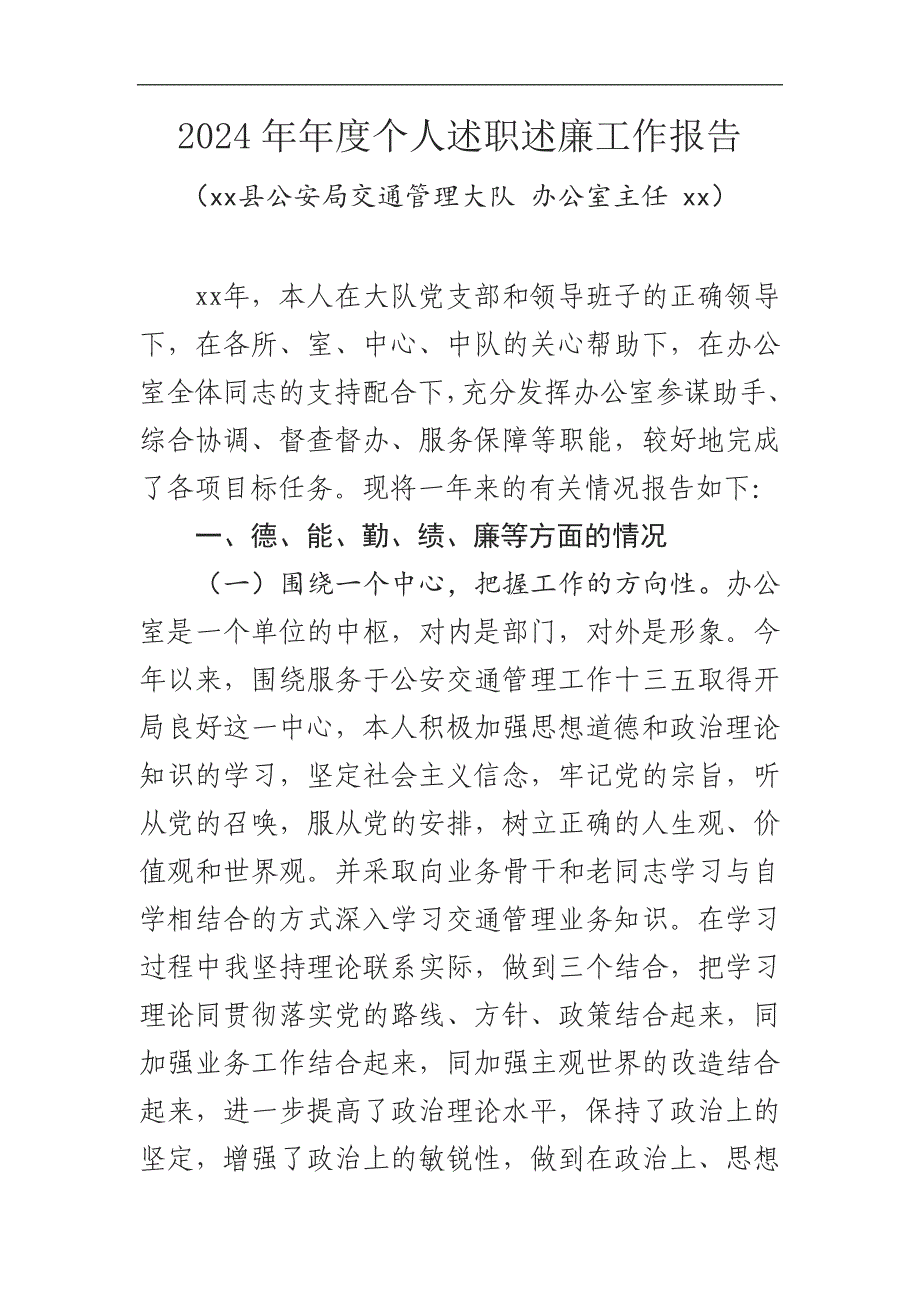 2024 年年度个人述职述廉工作报告
（xx县公安局交通管理大队 办公室主任 xx）
xx年，本人在大队党支部和领导班子的正确领导
下，在各所、室、中心、中队的关心帮助下，在办公
室全体同志的支持配合下，充分发挥办公室参谋助手、
综合协调、督查督办、服务保障等职能，较好地完成
了各项目标任务。现将一年来的有关情况报告如下：
一、德、能、勤、绩、廉等方面的情况
（一）围绕一个中心，把握工作的方向性。办公
室是一个单位的中枢，对内是部门，对外是形象。今
年以来，围绕服务于公安交通管理工作十三五取得开
局良好这一中心，本人积极加强思想道德和政治理论
知识的学习，坚定社会主义信念，牢记党的宗旨，听
从党的召唤，服从党的安排，树立正确的人生观、价
值观和世界观。并采取向业务骨干和老同志学习与自
学相结合的方式深入学习交通管理业务知识。在学习
过程中我坚持理论联系实际，做到三个结合，把学习
理论同贯彻落实党的路线、方针、政策结合起来，同
加强业务工作结合起来，同加强主观世界的改造结合
起来，进一步提高了政治理论水平，保持了政治上的
坚定，增强了政治上的敏锐性，做到在政治上、思想